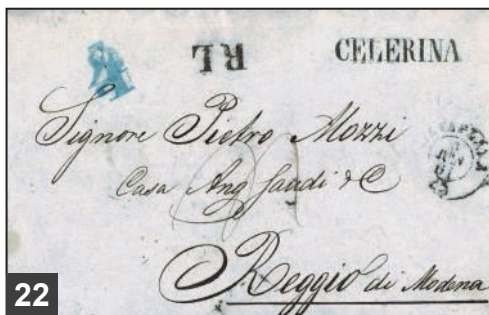 RL CELERINA
Signore Pietro Mozzi
Casa Ang
Reggio di Modena
22